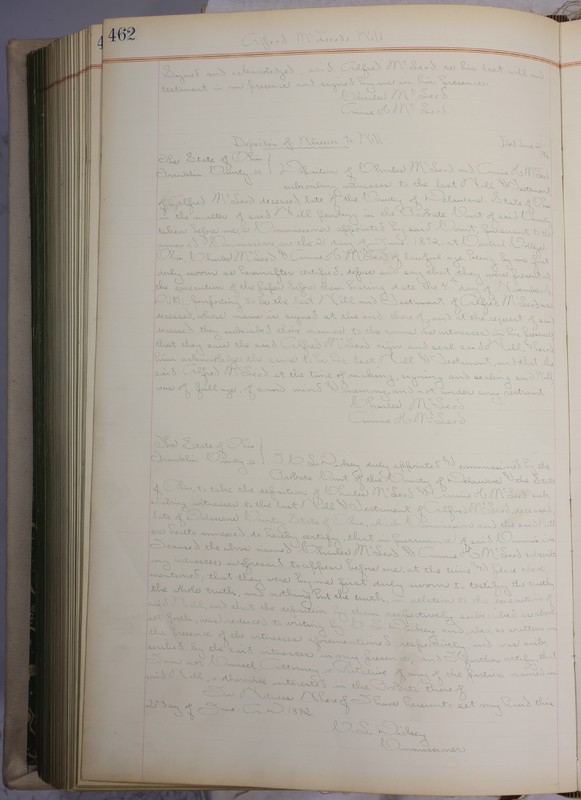 462
Alfred McLeod's Will
Signed and acknowledged, said Alfred McLeod as his last will and
testament in our presence and signed by us in his presence.
Charles McLeod
Connie H. McLeod
Deposition of Witnesses to Will
The State of Ohio
Franklin County ss Deposition of Charles McLeod and Connie H. McLeod
subscribing witnesses to the last Will & Testament
of Alfred McLeod deceased late of the County of Delaware State of Ohio
in the matter of said Will pending in the Probate Court of said County
taken before me, a Commissioner appointed by said Court, pursuant to the
annexed Commission on the 25 day of June 1892, at
Ohio. Charles McLeod & Connie H. McLeod of lawful age being by me first
duly sworn as hereinafter certified, depose and say that they were present at
the execution of the paper before them bearing date the day of November
purporting to be the last Will and Testament of Alfred McLeod
deceased, whose name is signed at the end thereof, and at the request of said
deceased they subscribed their names to the same as witnesses in his presence
that they saw the said Alfred McLeod sign and seal said Will & heard
him acknowledge the same to be his last Will & Testament, and that the
said Alfred McLeod at the time of making, signing and sealing said Will
was of full age, of sound mind & memory, and not under any restraint
Charles McLeod
Connie H. McLeod
The State of Ohio
Franklin County ss I, duly appointed & commissioned by the
Probate Court of the County of Delaware & the State
of Ohio, to take the deposition of Charles McLeod & Connie H. McLeod sub-
scribing witnesses to the last Will & Testament of Alfred McLeod, deceased
late of Delaware County, State of Ohio, which Commission and the said Will
are hereto annexed do hereby certify, that in pursuance of said Commission
I caused the above named Charles McLeod & Connie H. McLeod subscrib-
ing witnesses as aforesaid to appear before me at the time & place above
mentioned, that they were by me first duly sworn to testify the truth,
the whole truth, and nothing but the truth, in relation to the execution of
said Will, and that the deposition by them respectively subscribed as above
set forth, was reduced to writing by and was written in
the presence of the witnesses aforementioned respectively and was sub-
scribed by the said witnesses in my presence, and I further certify, that
I am not Counsel, Attorney or Relative of any of the parties named in
said Will, or otherwise interested in the Probate thereof
In Witness Whereof I have hereunto set my hand this
25 day of June A.D. 1892.
Commissioner